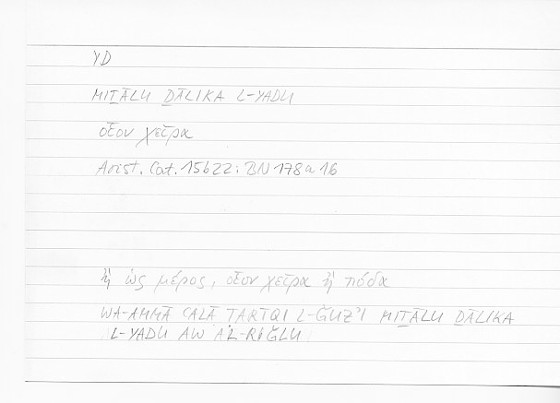 YD
MIṮĀLU ḎĀLIKA L-YADU
οἷον χεῖρα
Arist. Cat. 15b22; BN 178a16
ἢ ὡς μέρος, οἷον χεῖρα ἢ πόδα
WA-AMMĀ ʿALĀ ṬARĪQI L-ǦUZʾI MIṮĀLU ḎĀLIKA
L-YADU AW AL-RIǦLU